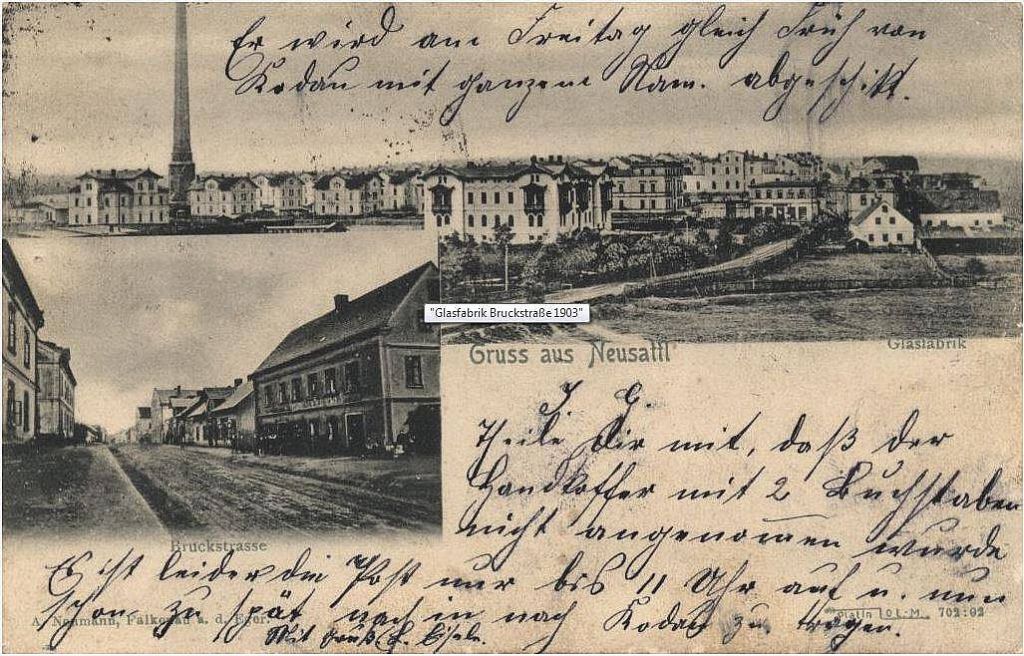 Er wird am Freitag gleich Früh von
Kodau mit ganzem Nam. abgeschikt.
"Glasfabrik Bruckstraße 1903"
Gruss aus Neusattl
Glasfabrik
J. G.
Theile Dir mit, daß der
Handkoffer mit 2 Buchstaben
nicht angenommen wurde
Bruckstrasse
Es ist leider die Post nur bis 11 Uhr auf u. nun
schon zu spät nach in nach Kodau zu tragen.
A. Neumann, Falkenau a. d. Eger.
702:02
Mit Gruß